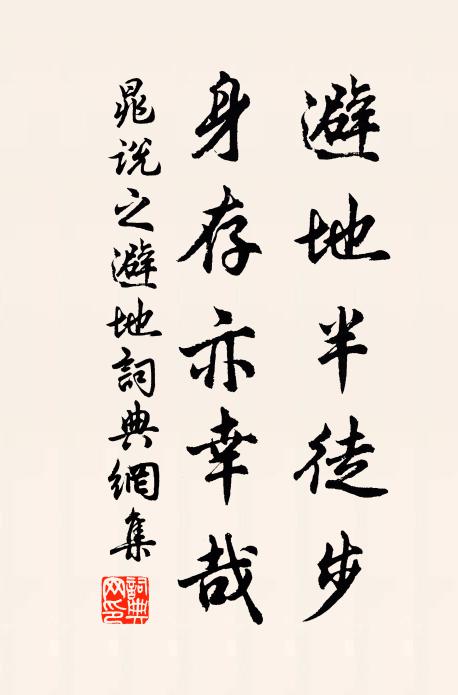 避地半徒步
身存亦幸哉
晁説之避地詞典網集
詞典网印